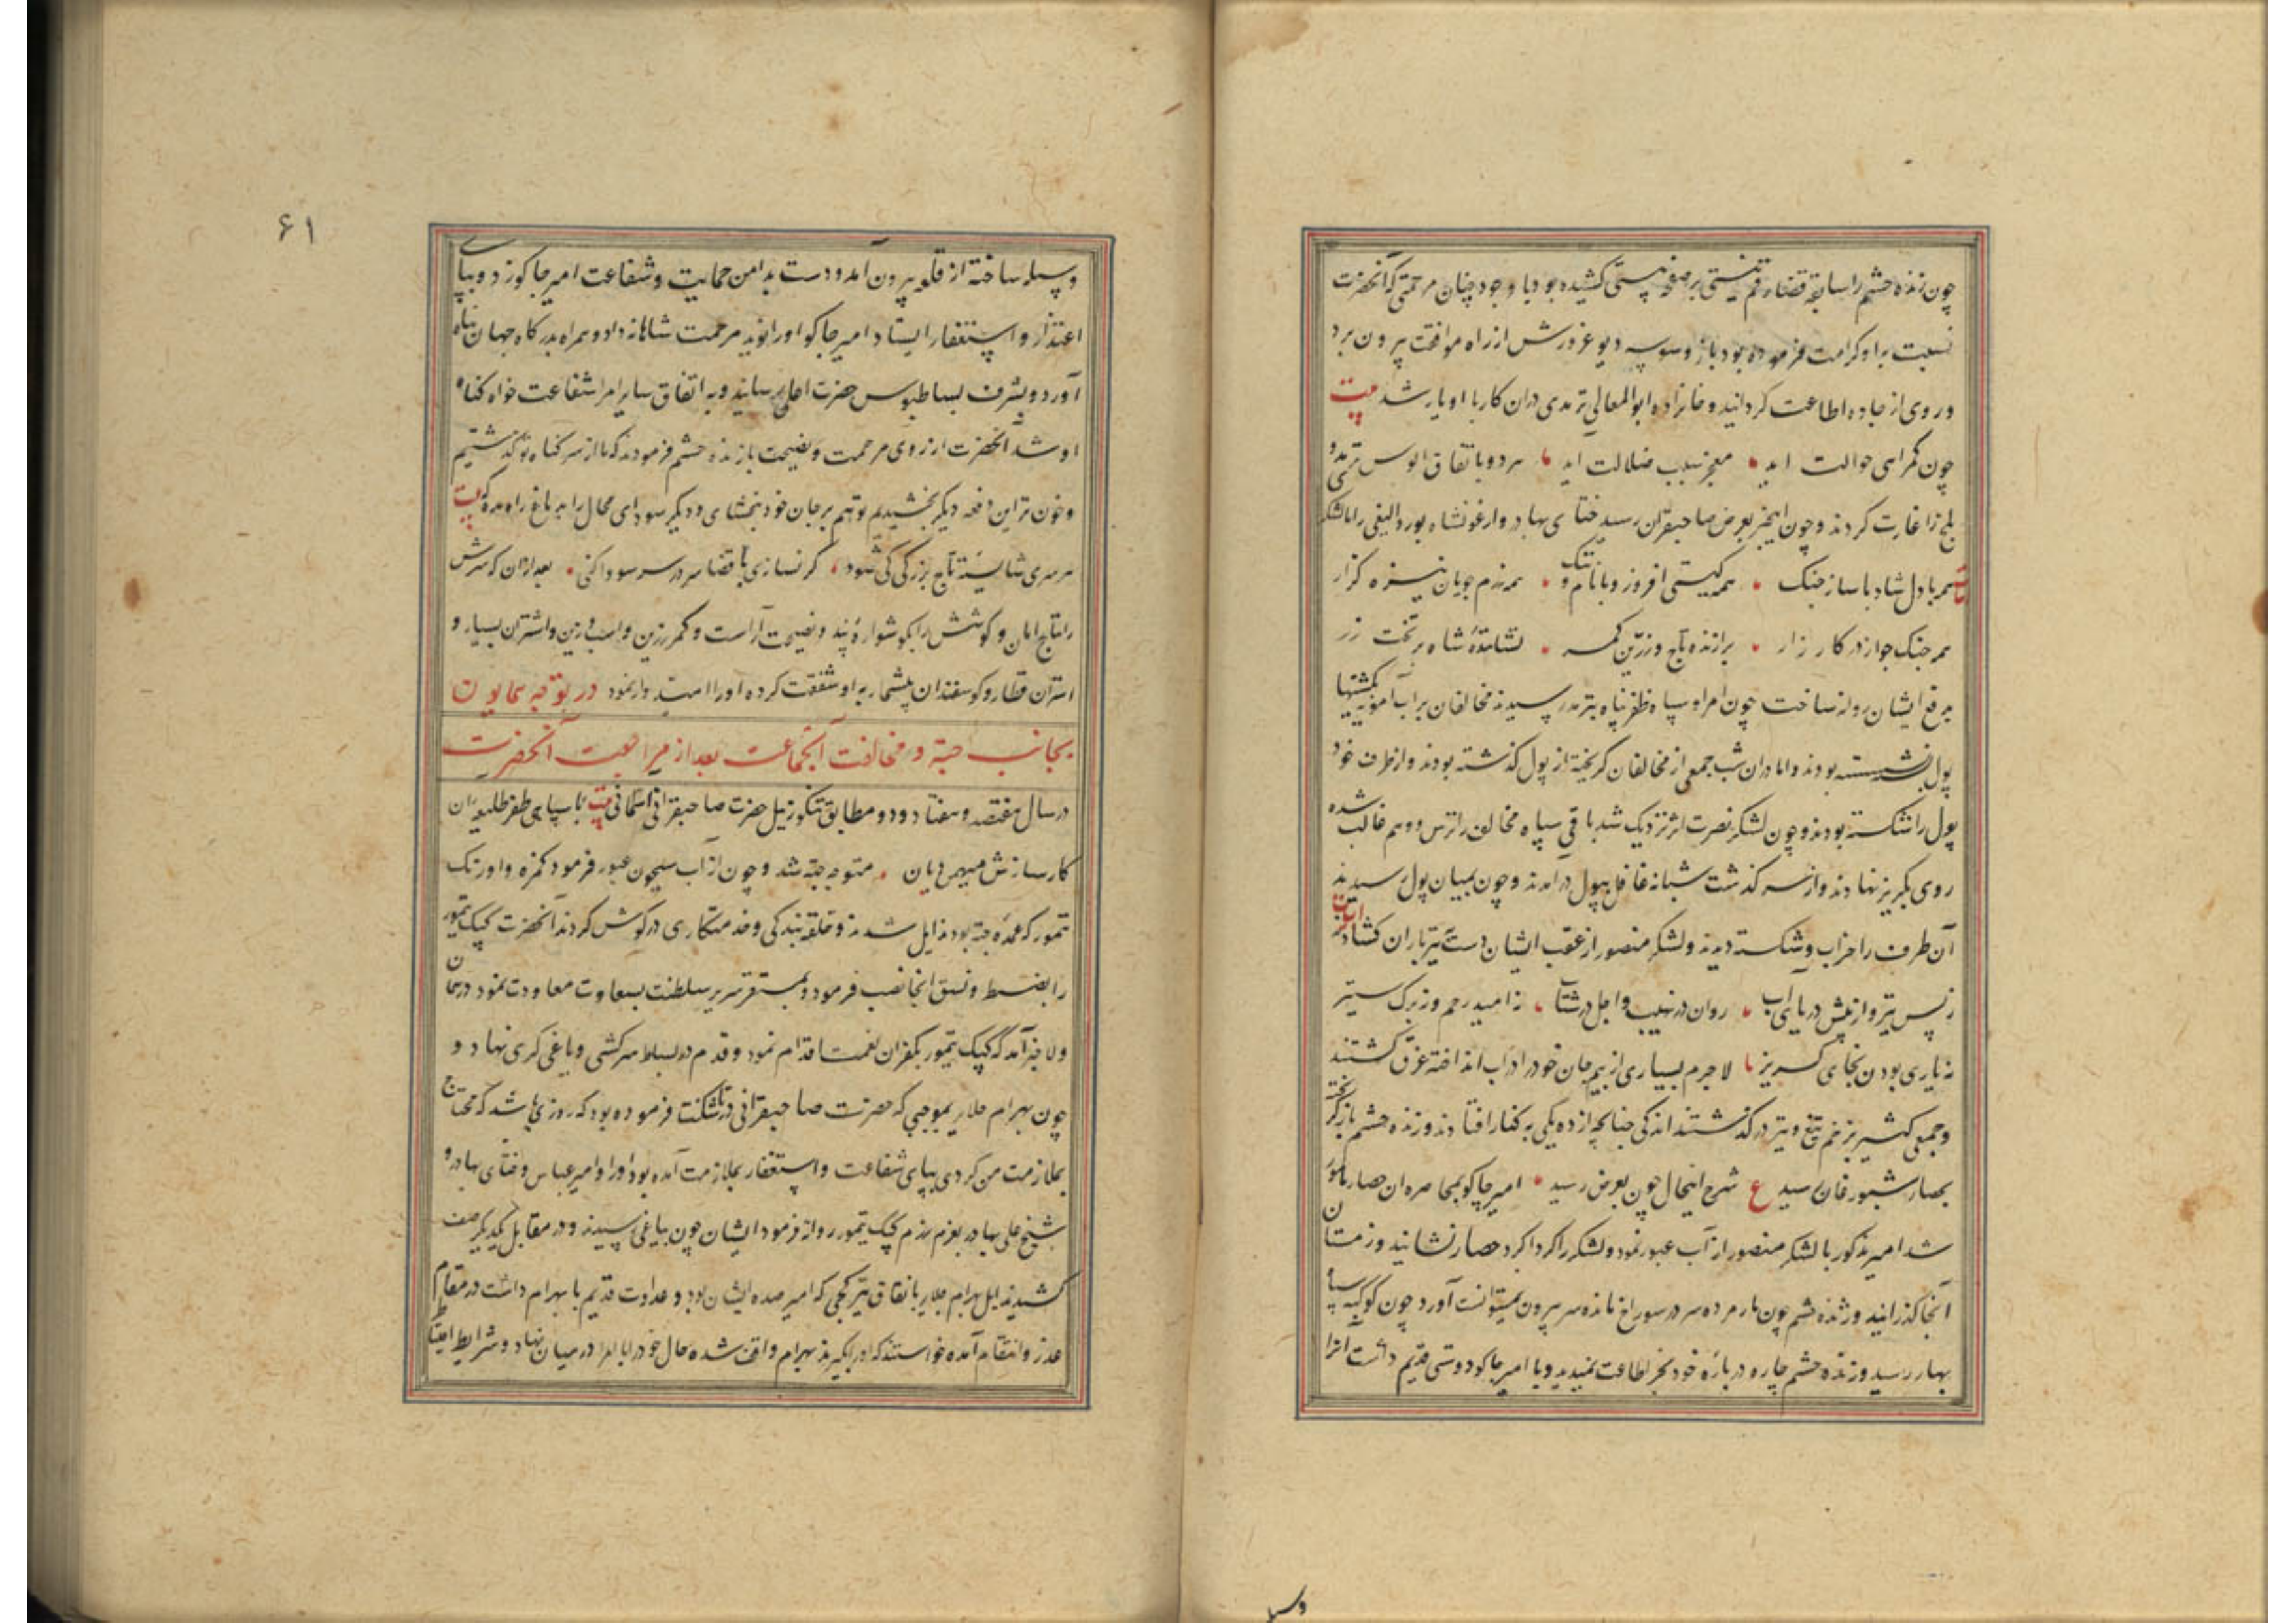 چون زنده حشم را سابقهٔ قضا رقم نیستی بر صفحهٔ هستی کشیده بود با وجود چنان مرحمتی که آنحضرت
نسبت باو کرامت فرموده بود باز وسوسه دیو غرورش از راه موافقت بیرون برد
و روی از جاده اطاعت کردانید و خانزاده ابوالمعالی ترمدی دران کار با او یار شد بیت
چون کمراهی حوالت آید معجز سبب ضلالت آید هر دو باتفاق الوس ترمد و
بلخ را غارت کردند و چون اینخبر بعرض صاحبقران رسید ختای بهادر و ارغونشاه بوردالیغی را با لشکر
همه با دل شاد با ساز جنک همه کیتی افروز و با نام و ننک همه رزم جویان نیزه کزار
همه جنک جو از در کارزار برازنده تاج و زرین کمر نشانندهٔ شاه بر تخت زر
بدفع ایشان روانه ساخت چون امرا و سپاه ظفرپناه بترمد رسیدند مخالفان بر آب آمویه بکشتیها
پول بسته بودند و اما دران شب جمعی از مخالفان کریخته از پول کذشته بودند و از طرف خود
پول را شکسته بودند و چون لشکر نصرت اثر نزدیک شد باقی سپاه مخالف را ترس و وهم غالب شده
روی بکریز نهادند و از سر کذشت شبانه غافل بپول درآمدند و چون بمیان پول رسیدند
آن طرف را خراب و شکسته دیدند و لشکر منصور از عقب ایشان دست بتیرباران کشادند ابیات
ز پس تیر و از پیش دریای آب روان در نهیب و اجل در شتاب نه امید رحم و نه برک ستیز
نه یاری بودن نه جای کریز لاجرم بسیاری از بیم جان خود را در آب انداخته غرق کشتند
و جمعی کثیر بزخم تیغ و تیر درکذشتند اندکی چنانچه از ده یکی به کنار افتادند و زنده حشم باز کریخته
بحصار شبورغان رسید ع شرح اینحال چون بعرض رسید امیر جاکو بمحاصره ان حصار مامور
شد امیر مذکور با لشکر منصور از آب عبور نمود و لشکر را کرداکرد حصار نشانید و زمستان
آنجا کذرانید و زنده حشم چون مار مرده سر در سوراخ مانده سر بیرون نمیتوانست آورد چون کوکبه سپاه
بهار رسید و زنده حشم چاره درباره خود بجز اطاعت نمیدید و با امیر جاکو دوستی قدیم داشت انرا
وسیله
۶۱
وسیله ساخته از قلعه بیرون آمد و دست بدامن حمایت و شفاعت امیر جاکو زد و بپای
اعتذار و استغفار ایستاد امیر جاکو او را نوید مرحمت شاهانه داد و همراه بدرکاه جهان پناه
آورد و بشرف بساط بوس حضرت اعلی رسانید و به اتفاق سایر امرا شفاعت خواه کناه
او شد آنحضرت از روی مرحمت و نصیحت با زنده حشم فرمودند که ما از سر کناه تو کذشتیم
و خون ترا این دفعه دیکر بخشیدیم تو هم بر جان خود ببخشای و دیکر سودای محال را بدماغ راه مده که بیت
هر سری شایستهٔ تاج بزرکی کی شود کر نسازی با قضا سر در سر سودا کنی بعد ازان که سرش
را بتاج امان و کوشش را بکوشوارهٔ پند و نصیحت آراست و کمر زرین و اسب و زین و اشتران بسیار و
استران قطار و کوسفندان بیشمار به او شفقت کرده او را امیدوار نمود در توجه همایون
بجانب جته و مخالفت آنجماعت بعد از مراجعت آنحضرت
در سال هفتصد و هفتاد و دو مطابق تنکوزئیل حضرت صاحبقرانی بیت با سپاهی ظفر طلیعهٔ آن
کارسازش مهیمن دیان متوجه جته شد و چون از آب سیحون عبور فرمود کمزه و اورنک
تمور که عمده جته بودند ایل شدند و حلقه بندکی و خدمتکاری در کوش کردند آنحضرت کپک تمور
را بضبط و نسق انجا نصب فرمود و بمستقر سریر سلطنت بسعادت معاودت نمود در همان
ولا خبر آمد که کپک تیمور بکفران نعمت اقدام نمود و قدم در بساط سرکشی و یاغی کری نهاد و
چون بهرام جلایر بموجبی که حضرت صاحبقرانی در تاشکنت فرموده بود که روزی باشد که محتاج
بملازمت من کردی بپای شفاعت و استغفار بملازمت آمده بود او را و امیر عباس و ختای بهادر و
شیخ علی بهادر بعزم رزم کپک تیمور روانه فرمود ایشان چون بیاغی رسیدند و در مقابل یکدیکر صف
کشیدند ایل بهرام جلایر باتفاق تیزکچی که امیر صده ایشان بود و عداوت قدیم با بهرام داشت در مقام
غدر و انتقام آمده خواستند که او را بکیرند بهرام واقف شده حال خود را با امرا در میان نهاد و شرایط احتیاط